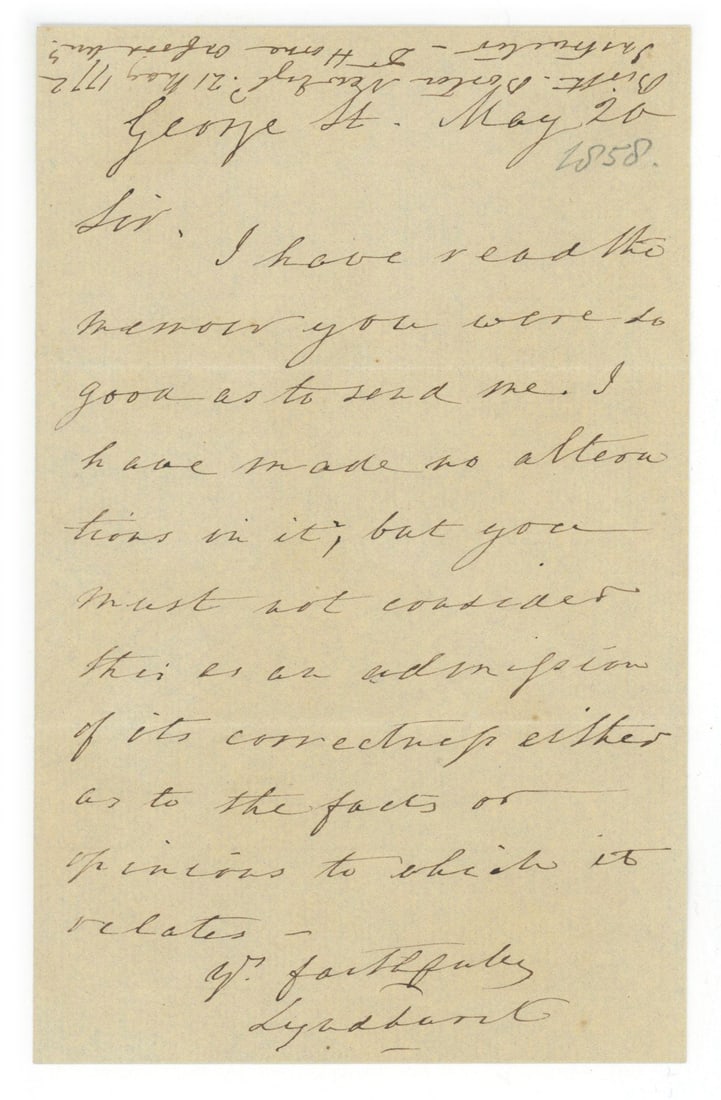 George St. May 20
1858.
Sir.
I have read the
memoir you were so
good as to send me. I
have made no altera
tions in it, but you
must not consider
this as an admission
of its correctness either
as to the facts or
opinions to which it
relates –
Yrs. faithfully
Lyndhurst
Birth. Boston New Engld. 21 May 1772
Instructor – Dr Horne